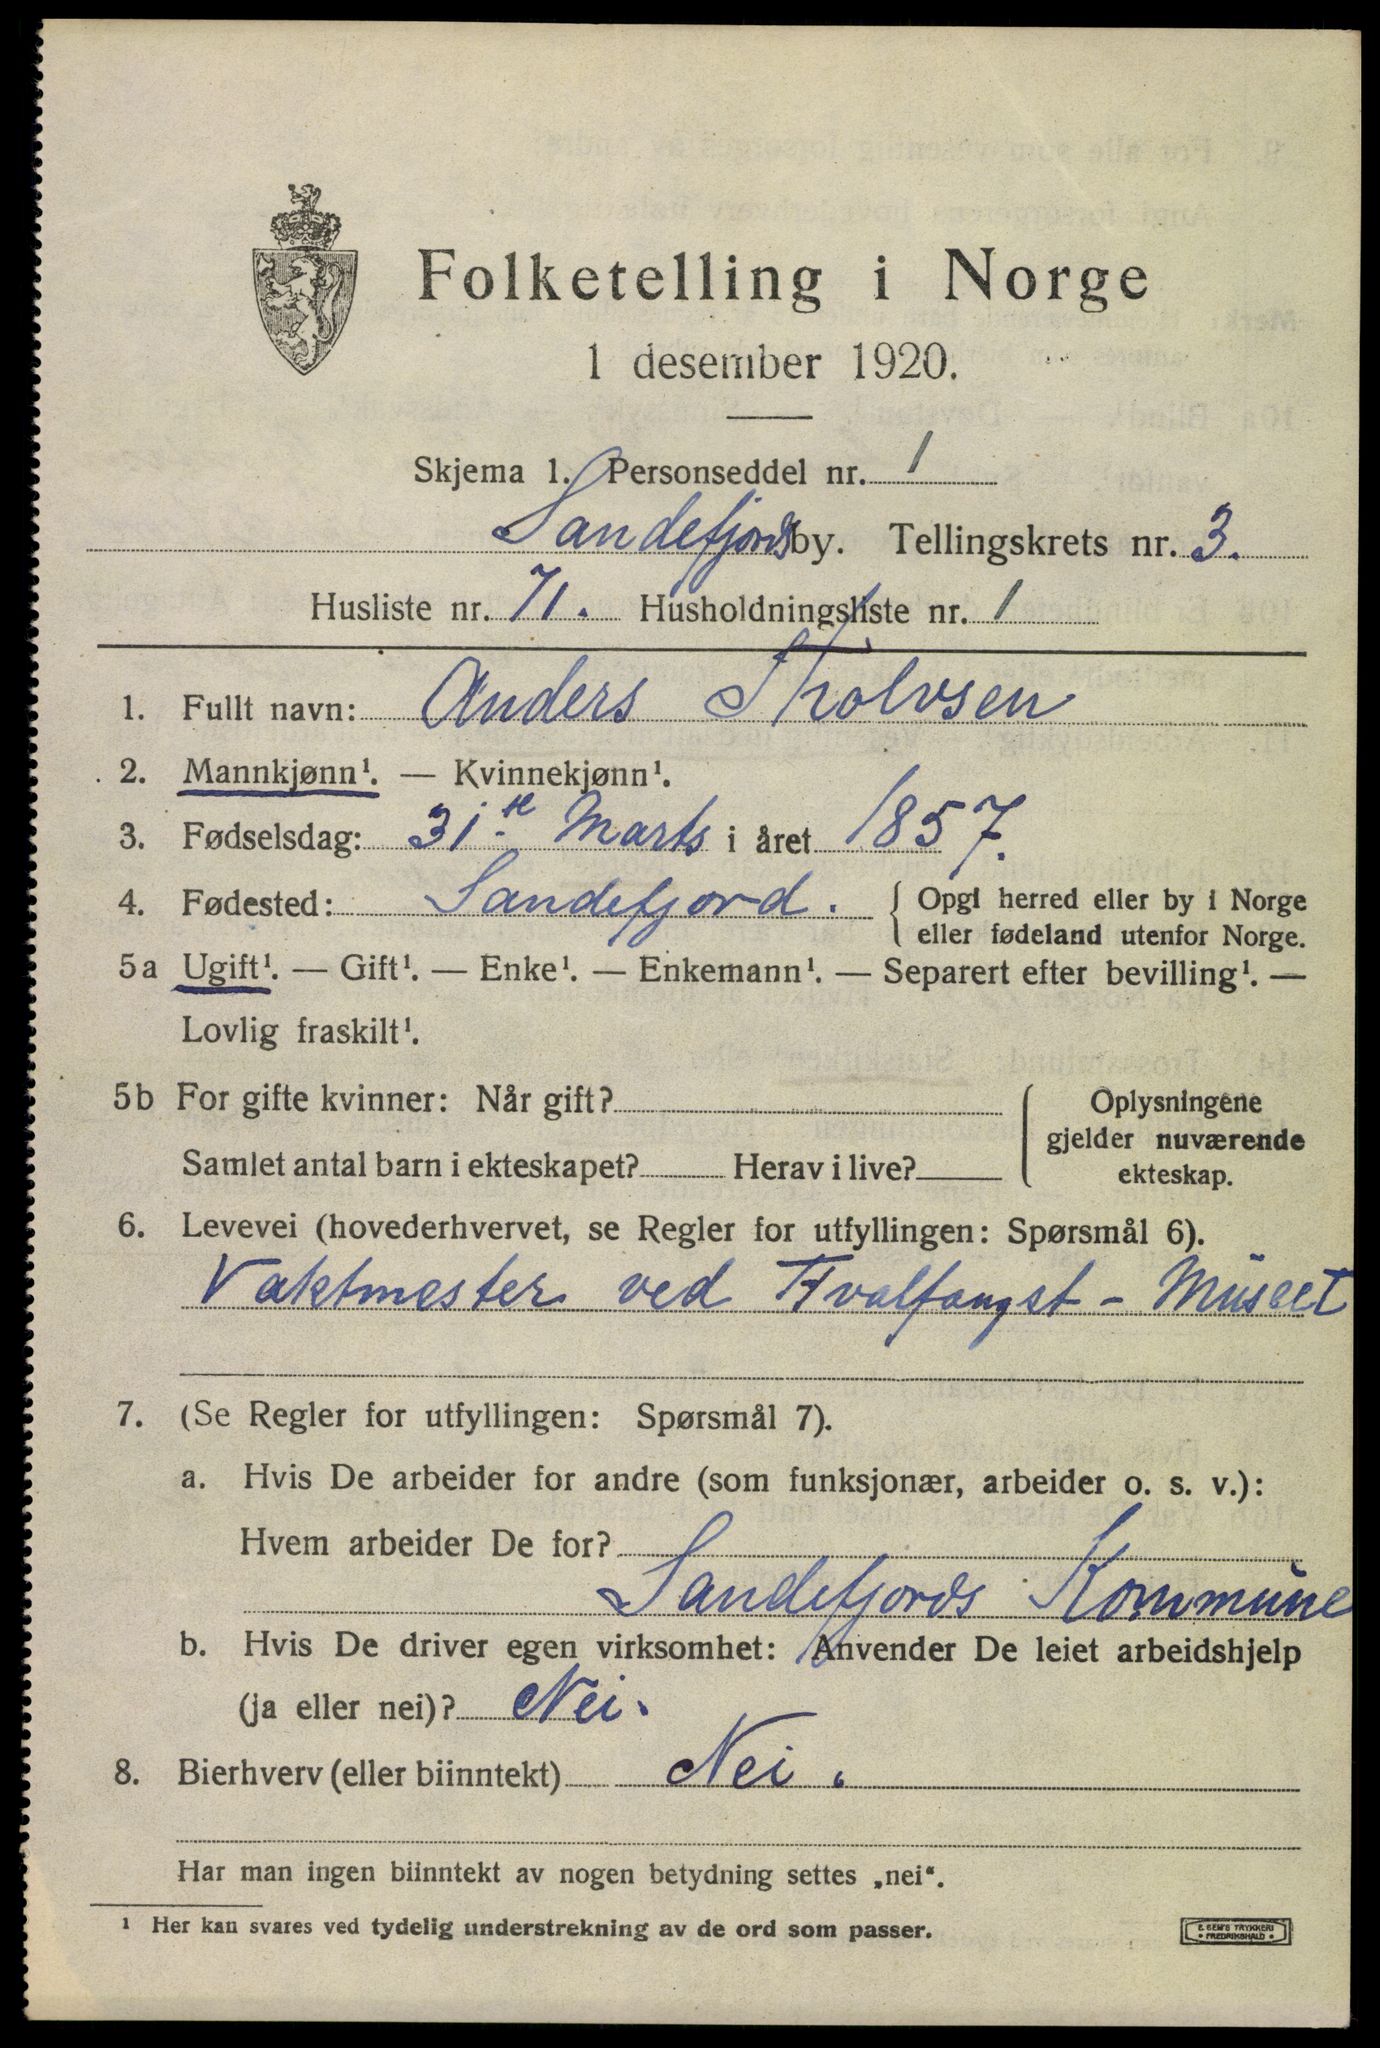 Folketelling i Norge
1 desember 1920.
Skjema 1. Personseddel nr. 1
Sandefjords by. Tellingskrets nr. 3.
Husliste nr. 71. Husholdningsliste nr. 1
1. Fullt navn: Anders Tholvsen
2. Mannkjønn¹. — Kvinnekjønn¹.
3. Fødselsdag: 31te Marts i året 1857.
4. Fødested: Sandefjord. { Opgi herred eller by i Norge
eller fødeland utenfor Norge.
5a Ugift¹. — Gift¹. — Enke¹. — Enkemann¹. — Separert efter bevilling¹. —
Lovlig fraskilt¹.
5b For gifte kvinner: Når gift? { Oplysningene
gjelder nuværende
Samlet antal barn i ekteskapet? Herav i live? ekteskap.
6. Levevei (hovederhvervet, se Regler for utfyllingen: Spørsmål 6).
Vaktmester ved Hvalfangst - Museet
7. (Se Regler for utfyllingen: Spørsmål 7).
a. Hvis De arbeider for andre (som funksjonær, arbeider o. s. v.):
Hvem arbeider De for?
Sandefjords Kommune
b. Hvis De driver egen virksomhet: Anvender De leiet arbeidshjelp
(ja eller nei)? Nei.
8. Bierhverv (eller biinntekt) Nei.
Har man ingen biinntekt av nogen betydning settes „nei“.
¹ Her kan svares ved tydelig understrekning av de ord som passer.
E. SEM'S TRYKKERI
• FREDRIKSHALD •